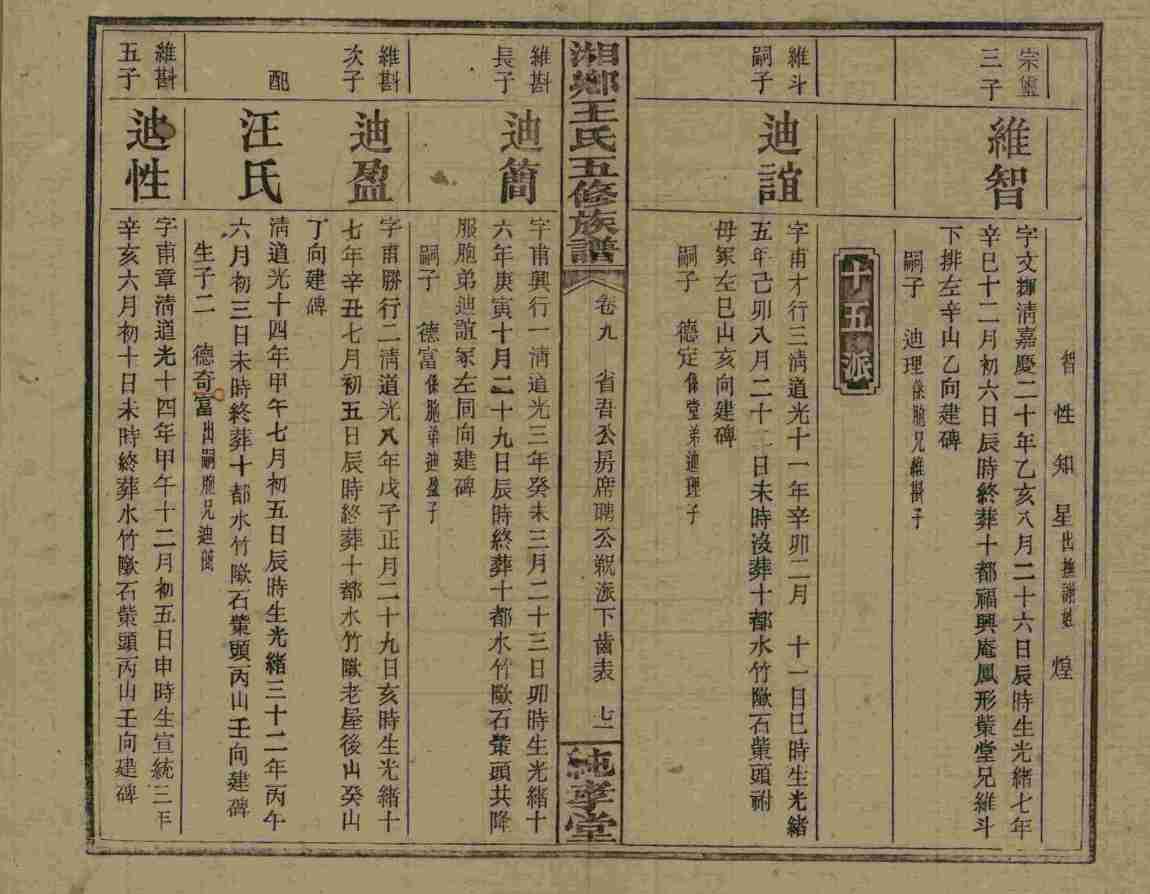 智 性 知 星 出撫謝姓 煌
宗璽
三子
維智
字文輝清嘉慶二十年乙亥八月二十六日辰時生光緒七年
辛巳十二月初六日辰時終葬十都福興庵鳳形塋堂兄維斗
下排左辛山乙向建碑
嗣子 迪理 係胞兄維斟子
十五派
維斗
嗣子
迪誼
字甫才行三淸道光十一年辛卯二月 十一日巳時生光緒
五年己卯八月二十二日未時沒葬十都水竹歐石塋頭祔
母冢左巳山亥向建碑
嗣子 德定 係堂弟迪理子
湘鄉王氏五修族譜
卷九 省吾公房席聘公親派下齒表 七一
純孝堂
維斟
長子
迪簡
字甫興行一淸道光三年癸未三月二十三日卯時生光緒十
六年庚寅十月二十九日辰時終葬十都水竹歐石塋頭共降
服胞弟迪誼冢左同向建碑
嗣子 德富 係胞弟迪盈子
維斟
次子
迪盈
字甫勝行二淸道光八年戊子正月二十九日亥時生光緒十
七年辛丑七月初五日辰時終葬十都水竹歐老屋後山癸山
丁向建碑
配
汪氏
淸道光十四年甲午七月初五日辰時生光緒三十二年丙午
六月初三日未時終葬十都水竹歐石塋頭丙山壬向建碑
生子二 德奇 富 出嗣胞兄迪簡
維斟
五子
迪性
字甫章淸道光十四年甲午十二月初五日申時生宣統三年
辛亥六月初十日未時終葬水竹歐石塋頭丙山壬向建碑